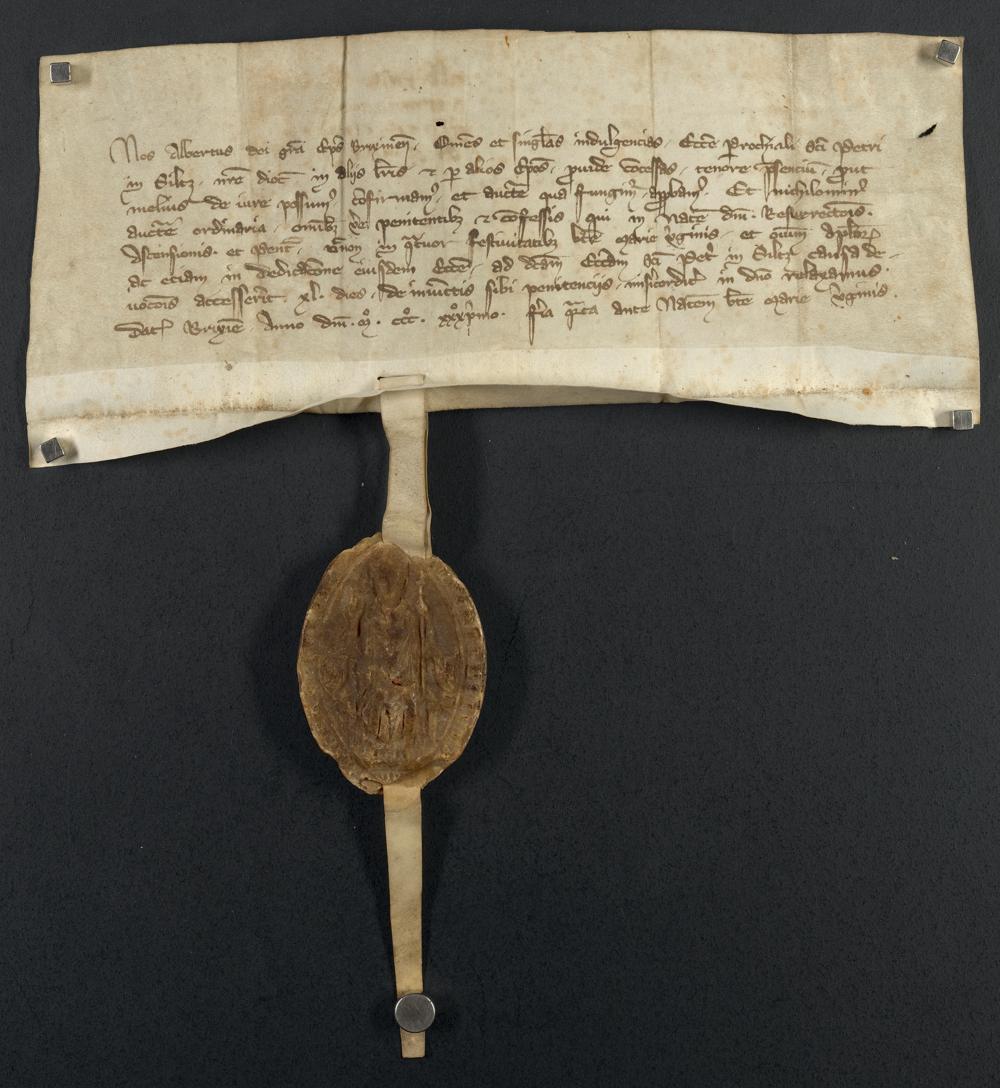 Nos Albertus dei gr̄a Ep̄s Brixineñ . Om̄es et singl̄as indulgencias . Ecc̄e ꝑroch̄iali Sc̄i Petri
in Siltz . nr̄e dioc̄ . in alijs lr̄is . ⁊ ꝑ alios Ep̄os . ꝓuide ꝯcessas . tenore p̄senciū . put
melius de iure possum᷒ . ꝯfirmam᷒ . et auct̄e qua fungim᷒ . app̄bam᷒ . Et nichilomin᷒
auct̄e ordīaria . om̄ibꝫ ve᷒ penitentibꝫ ⁊ ꝯfessis . qui in Nat̄e dn̄i . Resurrect̄ois .
Ascensionis . et Pent̄ . in q̄tuor festiuitatibꝫ bt̄e Marie v̓ginis . et om̄iū Apl̄oꝝ
ac etiam . in dedicac̄one eiusdem Ecc̄e . ad dc̄am Ecc̄am Sc̄i Pet̓ in Siltz causa de-
uoc̄ois accesser̄it . xl . dies . de iniūctis sibi penitencijs . misicordit᷒ in dn̄o relaxamus .
Dat̄ Brixīe . Anno dn̄i . M̊ . ccc̊ . xxx̊p̄mo . fr̄ia q̄rta ante Natem̄ bt̄e Marie v̓ginis .